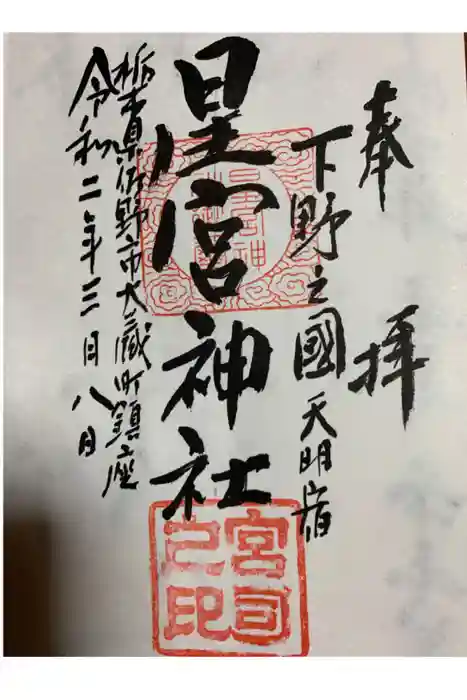 奉拝
下野之國 天明宿
星宮神社
栃木県佐野市大蔵町鎮座
令和二年三月八日
宮司
之印